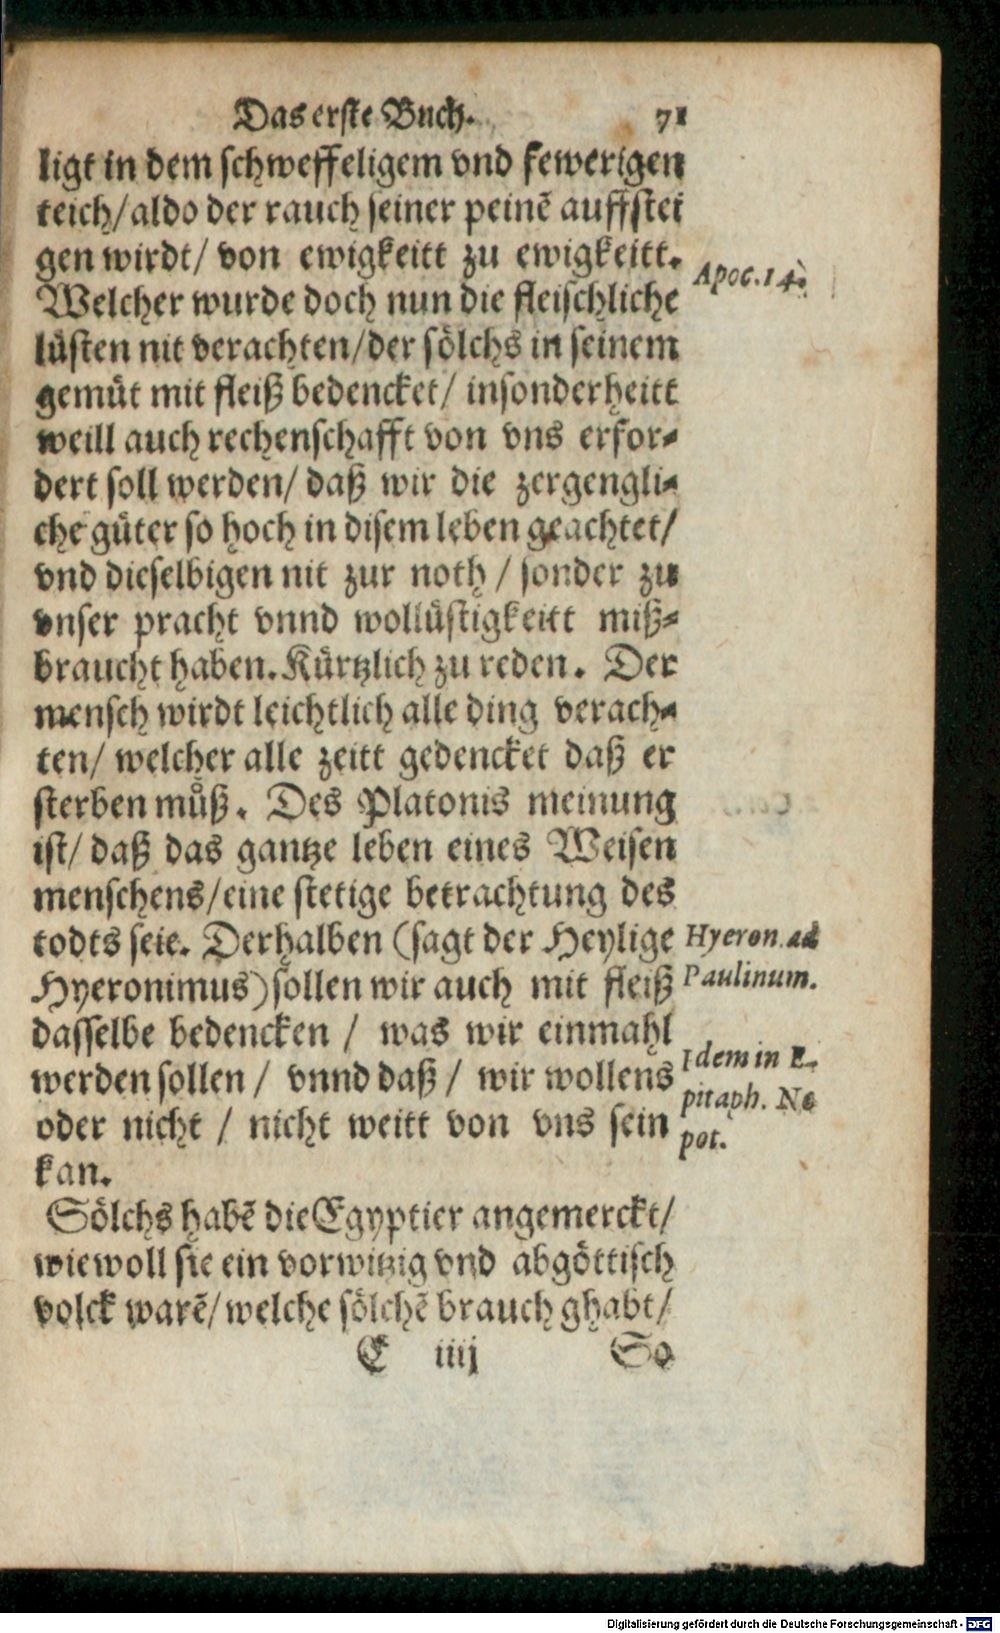 Das erste Buch. 71
ligt in dem schweffeligem vnd fewerigen
teich/aldo der rauch seiner peinē auffstei
gen wirdt/ von ewigkeitt zu ewigkeitt.
Apoc. 14.
Welcher wurde doch nun die fleischliche
lüsten nit verachten/der sölchs in seinem
gemüt mit fleiß bedencket/ insonderheitt
weill auch rechenschafft von vns erfor-
dert soll werden/ daß wir die zergengli-
che güter so hoch in disem leben geachtet/
vnd dieselbigen nit zur noth / sonder zu
vnser pracht vnnd wollüstigkeitt miß-
braucht haben. Kürtzlich zu reden. Der
mensch wirdt leichtlich alle ding verach-
ten/ welcher alle zeitt gedencket daß er
sterben müß. Des Platonis meinung
ist/ daß das gantze leben eines Weisen
menschens/eine stetige betrachtung des
todts seie. Derhalben (sagt der Heylige
Hyeron. ad
Hyeronimus) sollen wir auch mit fleiß
Paulinum.
dasselbe bedencken / was wir einmahl
werden sollen / vnnd daß / wir wollens
Idem in E-
pitaph. Ne
oder nicht / nicht weitt von vns sein
pot.
kan.
Sölchs habē die Egyptier angemerckt/
wiewoll sie ein vorwitzig vnd abgöttisch
volck warē/ welche sölchē brauch ghabt/
E iiij So
Digitalisierung gefördert durch die Deutsche Forschungsgemeinschaft - DFG